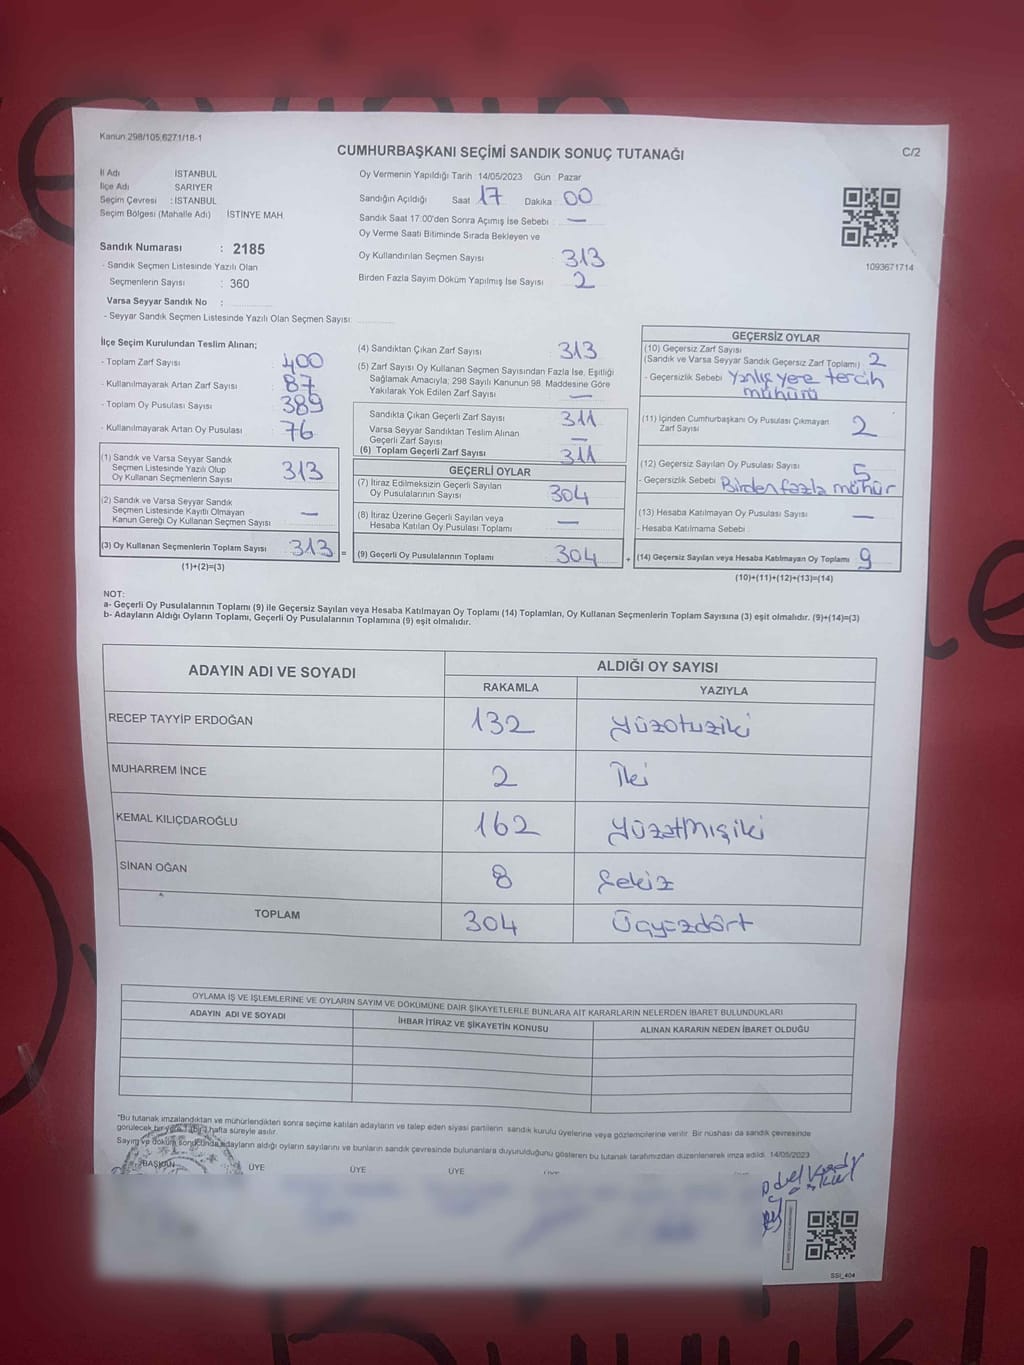 Kanun 298/105,6271/18-1
CUMHURBAŞKANI SEÇİMİ SANDIK SONUÇ TUTANAĞI
C/2
İl Adı İSTANBUL
İlçe Adı SARIYER
Seçim Çevresi : İSTANBUL
Seçim Bölgesi (Mahalle Adı) İSTİNYE MAH.
Sandık Numarası : 2185
- Sandık Seçmen Listesinde Yazılı Olan
Seçmenlerin Sayısı : 360
Varsa Seyyar Sandık No :
- Seyyar Sandık Seçmen Listesinde Yazılı Olan Seçmen Sayısı:
Oy Vermenin Yapıldığı Tarih : 14/05/2023 Gün : Pazar
Sandığın Açıldığı Saat 17 Dakika : 00
Sandık Saat 17:00'den Sonra Açımış İse Sebebi : —
Oy Verme Saati Bitiminde Sırada Bekleyen ve
Oy Kullandırılan Seçmen Sayısı : 313
Birden Fazla Sayım Döküm Yapılmış İse Sayısı : 2
1093671714
İlçe Seçim Kurulundan Teslim Alınan;
- Toplam Zarf Sayısı : 400
- Kullanılmayarak Artan Zarf Sayısı : 87
- Toplam Oy Pusulası Sayısı : 389
- Kullanılmayarak Artan Oy Pusulası : 76
(1) Sandık ve Varsa Seyyar Sandık
Seçmen Listesinde Yazılı Olup
Oy Kullanan Seçmenlerin Sayısı : 313
(2) Sandık ve Varsa Seyyar Sandık
Seçmen Listesinde Kayıtlı Olmayan
Kanun Gereği Oy Kullanan Seçmen Sayısı : —
(3) Oy Kullanan Seçmenlerin Toplam Sayısı : 313 =
(1)+(2)=(3)
(4) Sandıktan Çıkan Zarf Sayısı : 313
(5) Zarf Sayısı Oy Kullanan Seçmen Sayısından Fazla İse, Eşitliği
Sağlamak Amacıyla; 298 Sayılı Kanunun 98. Maddesine Göre
Yakılarak Yok Edilen Zarf Sayısı : —
Sandıkta Çıkan Geçerli Zarf Sayısı : 311
Varsa Seyyar Sandıktan Teslim Alınan
Geçerli Zarf Sayısı : —
(6) Toplam Geçerli Zarf Sayısı : 311
GEÇERLİ OYLAR
(7) İtiraz Edilmeksizin Geçerli Sayılan
Oy Pusulalarının Sayısı : 304
(8) İtiraz Üzerine Geçerli Sayılan veya
Hesaba Katılan Oy Pusulası Toplamı : —
(9) Geçerli Oy Pusulalarının Toplamı : 304 +
GEÇERSİZ OYLAR
(10) Geçersiz Zarf Sayısı
(Sandık ve Varsa Seyyar Sandık Geçersiz Zarf Toplamı) : 2
- Geçersizlik Sebebi : Yanlış yere tercih
mühürü
(11) İçinden Cumhurbaşkanı Oy Pusulası Çıkmayan
Zarf Sayısı : 2
(12) Geçersiz Sayılan Oy Pusulası Sayısı : 5
- Geçersizlik Sebebi : Birden fazla mühür
(13) Hesaba Katılmayan Oy Pusulası Sayısı : —
- Hesaba Katılmama Sebebi :
(14) Geçersiz Sayılan veya Hesaba Katılmayan Oy Toplamı : 9
(10)+(11)+(12)+(13)=(14)
NOT:
a- Geçerli Oy Pusulalarının Toplamı (9) ile Geçersiz Sayılan veya Hesaba Katılmayan Oy Toplamı (14) Toplamları, Oy Kullanan Seçmenlerin Toplam Sayısına (3) eşit olmalıdır. (9)+(14)=(3)
b- Adayların Aldığı Oyların Toplamı, Geçerli Oy Pusulalarının Toplamına (9) eşit olmalıdır.
ADAYIN ADI VE SOYADI
ALDIĞI OY SAYISI
RAKAMLA YAZIYLA
RECEP TAYYİP ERDOĞAN 132 Yüzotuziki
MUHARREM İNCE 2 İki
KEMAL KILIÇDAROĞLU 162 Yüzatmışiki
SİNAN OĞAN 8 Sekiz
TOPLAM 304 Üçyüzdört
OYLAMA İŞ VE İŞLEMLERİNE VE OYLARIN SAYIM VE DÖKÜMÜNE DAİR ŞİKAYETLERLE BUNLARA AİT KARARLARIN NELERDEN İBARET BULUNDUKLARI
ADAYIN ADI VE SOYADI İHBAR İTİRAZ VE ŞİKAYETİN KONUSU ALINAN KARARIN NEDEN İBARET OLDUĞU
*Bu tutanak imzalandıktan ve mühürlendikten sonra seçime katılan adayların ve talep eden siyasi partilerin sandık kurulu üyelerine veya gözlemcilerine verilir. Bir nüshası da sandık çevresinde
görülecek bir yere 1 (bir) hafta süreyle asılır.
Sayım ve döküm sonucunda adayların aldığı oyların sayılarını ve bunların sandık çevresinde bulunanlara duyurulduğunu gösteren bu tutanak tarafımızdan düzenlenerek imza edildi. 14/05/2023
BAŞKAN ÜYE ÜYE ÜYE
SSİ_404